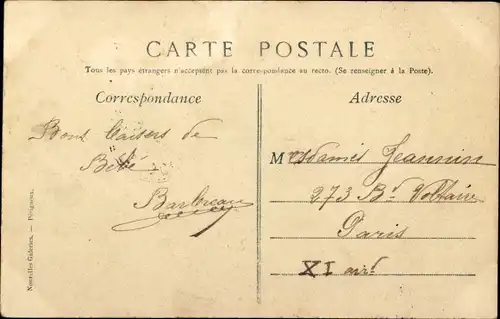 CARTE POSTALE
Tous les pays étrangers n'acceptent pas la correspondance au recto. (Se renseigner à la Poste).
Correspondance
Adresse
Bons baisers de
Bébé
Barbreau
Mesdames Jeannin
273 Bd Voltaire
Paris
XI ard
Nouvelles Galeries. — Périgueux.